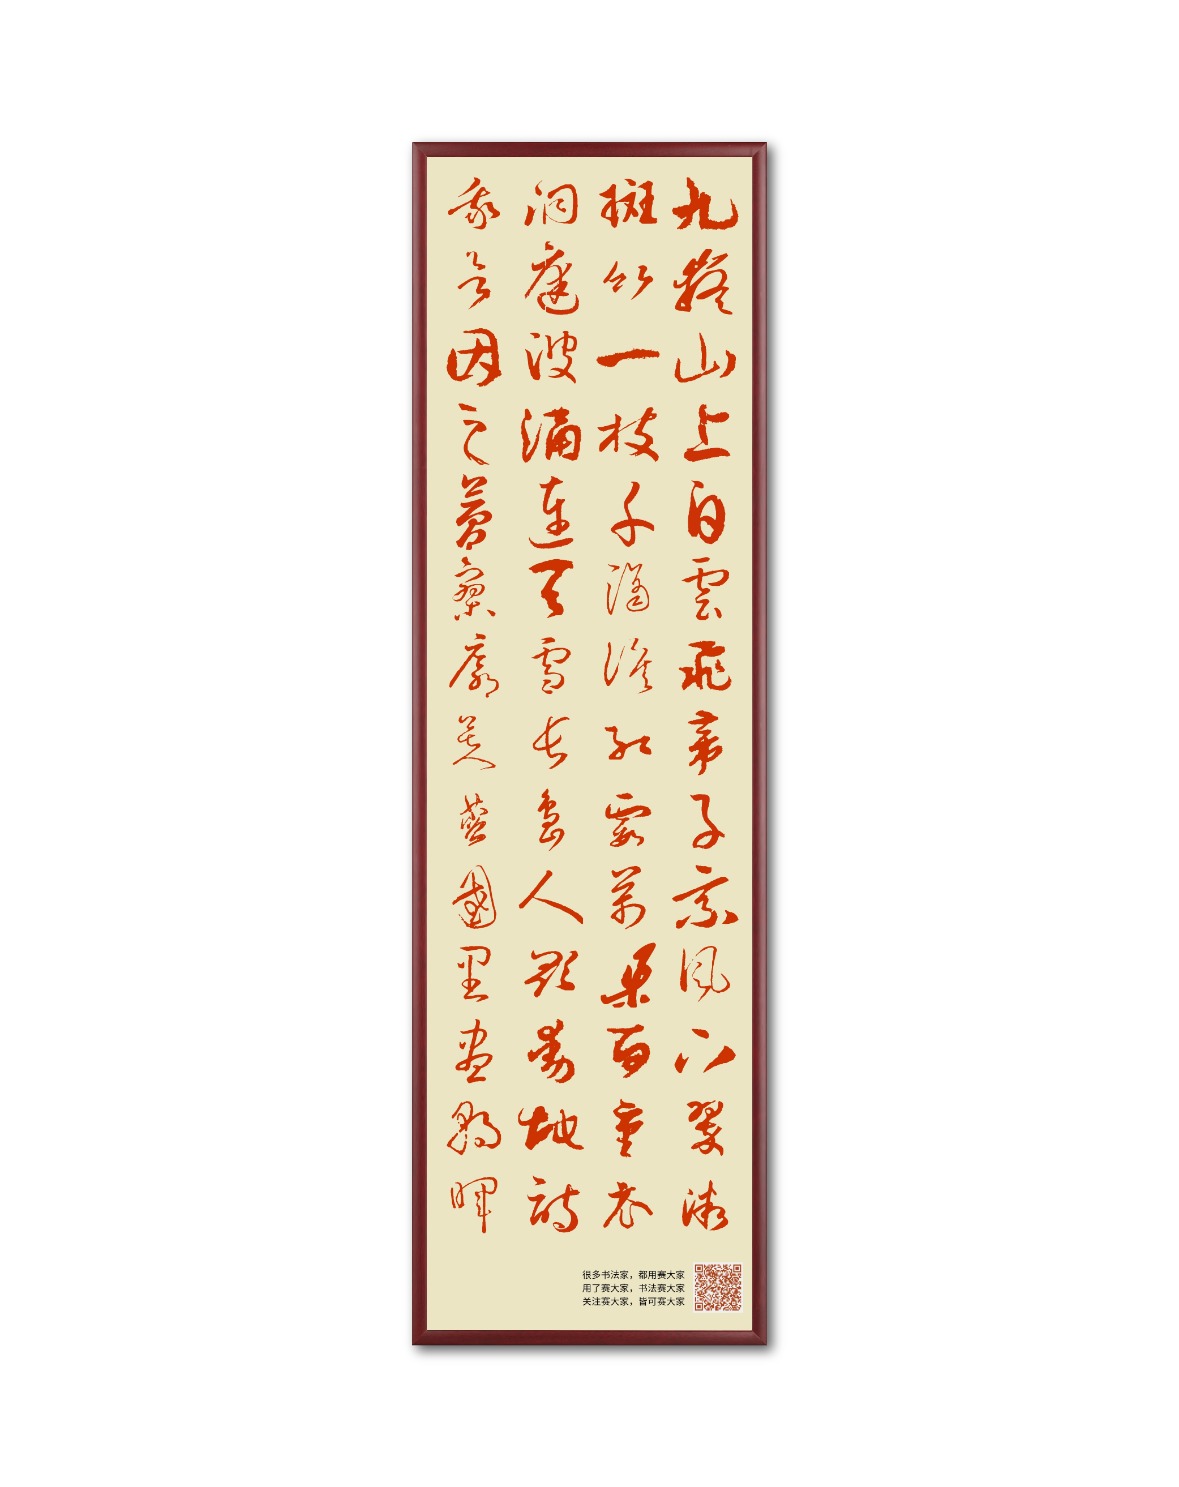 九嶷山上白雲飛帝子乘風下翠微
斑竹一枝千滴淚紅霞萬朵百重衣
洞庭波涌連天雪長島人歌動地詩
我欲因之夢寥廓芙蓉國里盡朝暉
很多书法家，都用赛大家
用了赛大家，书法赛大家
关注赛大家，皆可赛大家